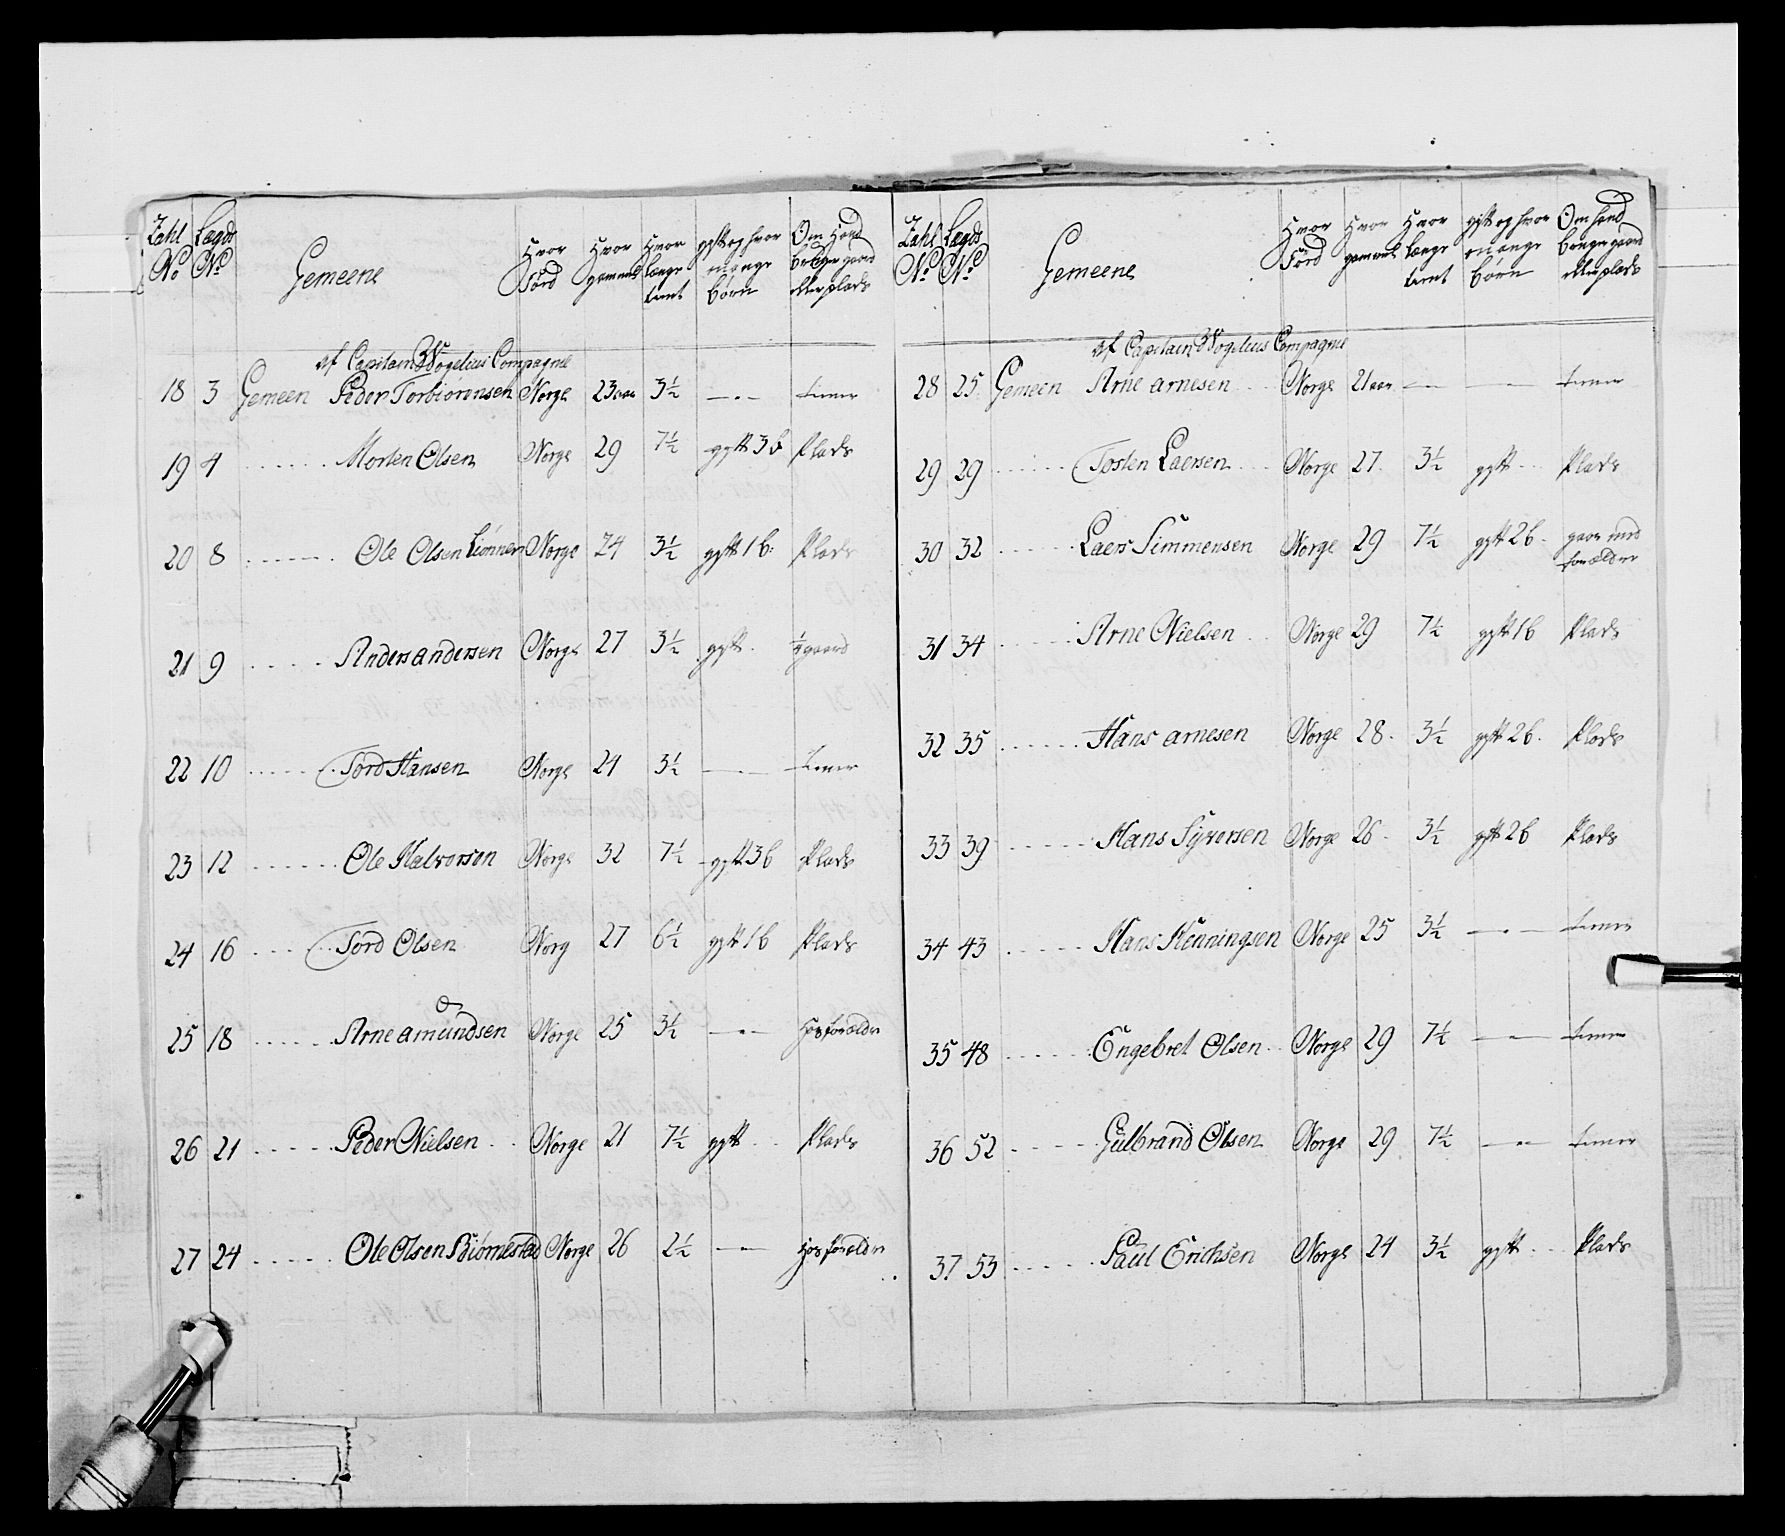 Zahl No | Lægds No | Gemeene | Hvor Född | Hvor gammel | Hvor længe tient | gift og hvor mange børn | Om Hand bruger gaard eller plads
af Capitain Wogelius Compagnie
18 3 Gemeen Peder Torbiörensen Norge 23 aar 3½ — tiener
19 4 ...... Morten Olsen Norge 29 7½ gift 3 b Plads
20 8 ...... Ole Olsen Norge 24 3½ gift 1 b: Plads
21 9 ...... Anders andersen Norge 27 3½ gift. gaard
22 10 ...... Tord Hansen Norge 24 3½ — tiener
23 12 ...... Ole Halvorsen Norge 32 7½ gift 3 b Plads
24 16 ...... Tord Olsen Norg 27 6½ gift 1 b Plads
25 18 ...... Arne amundsen Norge 25 3½ — Hos forældre
26 21 ...... Peder Nielsen Norge 21 7½ gift Plads
27 24 ...... Ole Olsen Biörnestad Norge 26 2½ — Hos forældre
Zahl No | Lægds No | Gemeene | Hvor Född | Hvor gammel | Hvor længe tient | gift og hvor mange börn | Om Hand bruger gaard eller plads
af Capitain Wogelius Compagnie
28 25 Gemeen Arne arnesen Norge 21 aar — — tiener
29 29 ...... Tosten Laersen Norge 27. 3½ gift Plads
30 32 ...... Laers Simmensen Norge 29 7½ gift 2 b. gaar med
forældre
31 34 ...... Arne Nielsen Norge 29 7½ gift 1 b Plads
32 35 ...... Hans arnesen Norge 28. 3½ gift 2 b. Plads
33 39 ...... Hans Syversen Norge 26. 3½ gift 2 b Plads
34 43 ...... Hans Henningsen Norge 25 3½ — tiener
35 48 ...... Engebret Olsen Norge 29 7½ — tiener
36 52 ...... Gulbrand Olsen Norge 29 7½ — tiener
37 53 ...... Paul Erichsen Norge 24 3½ gift Plads